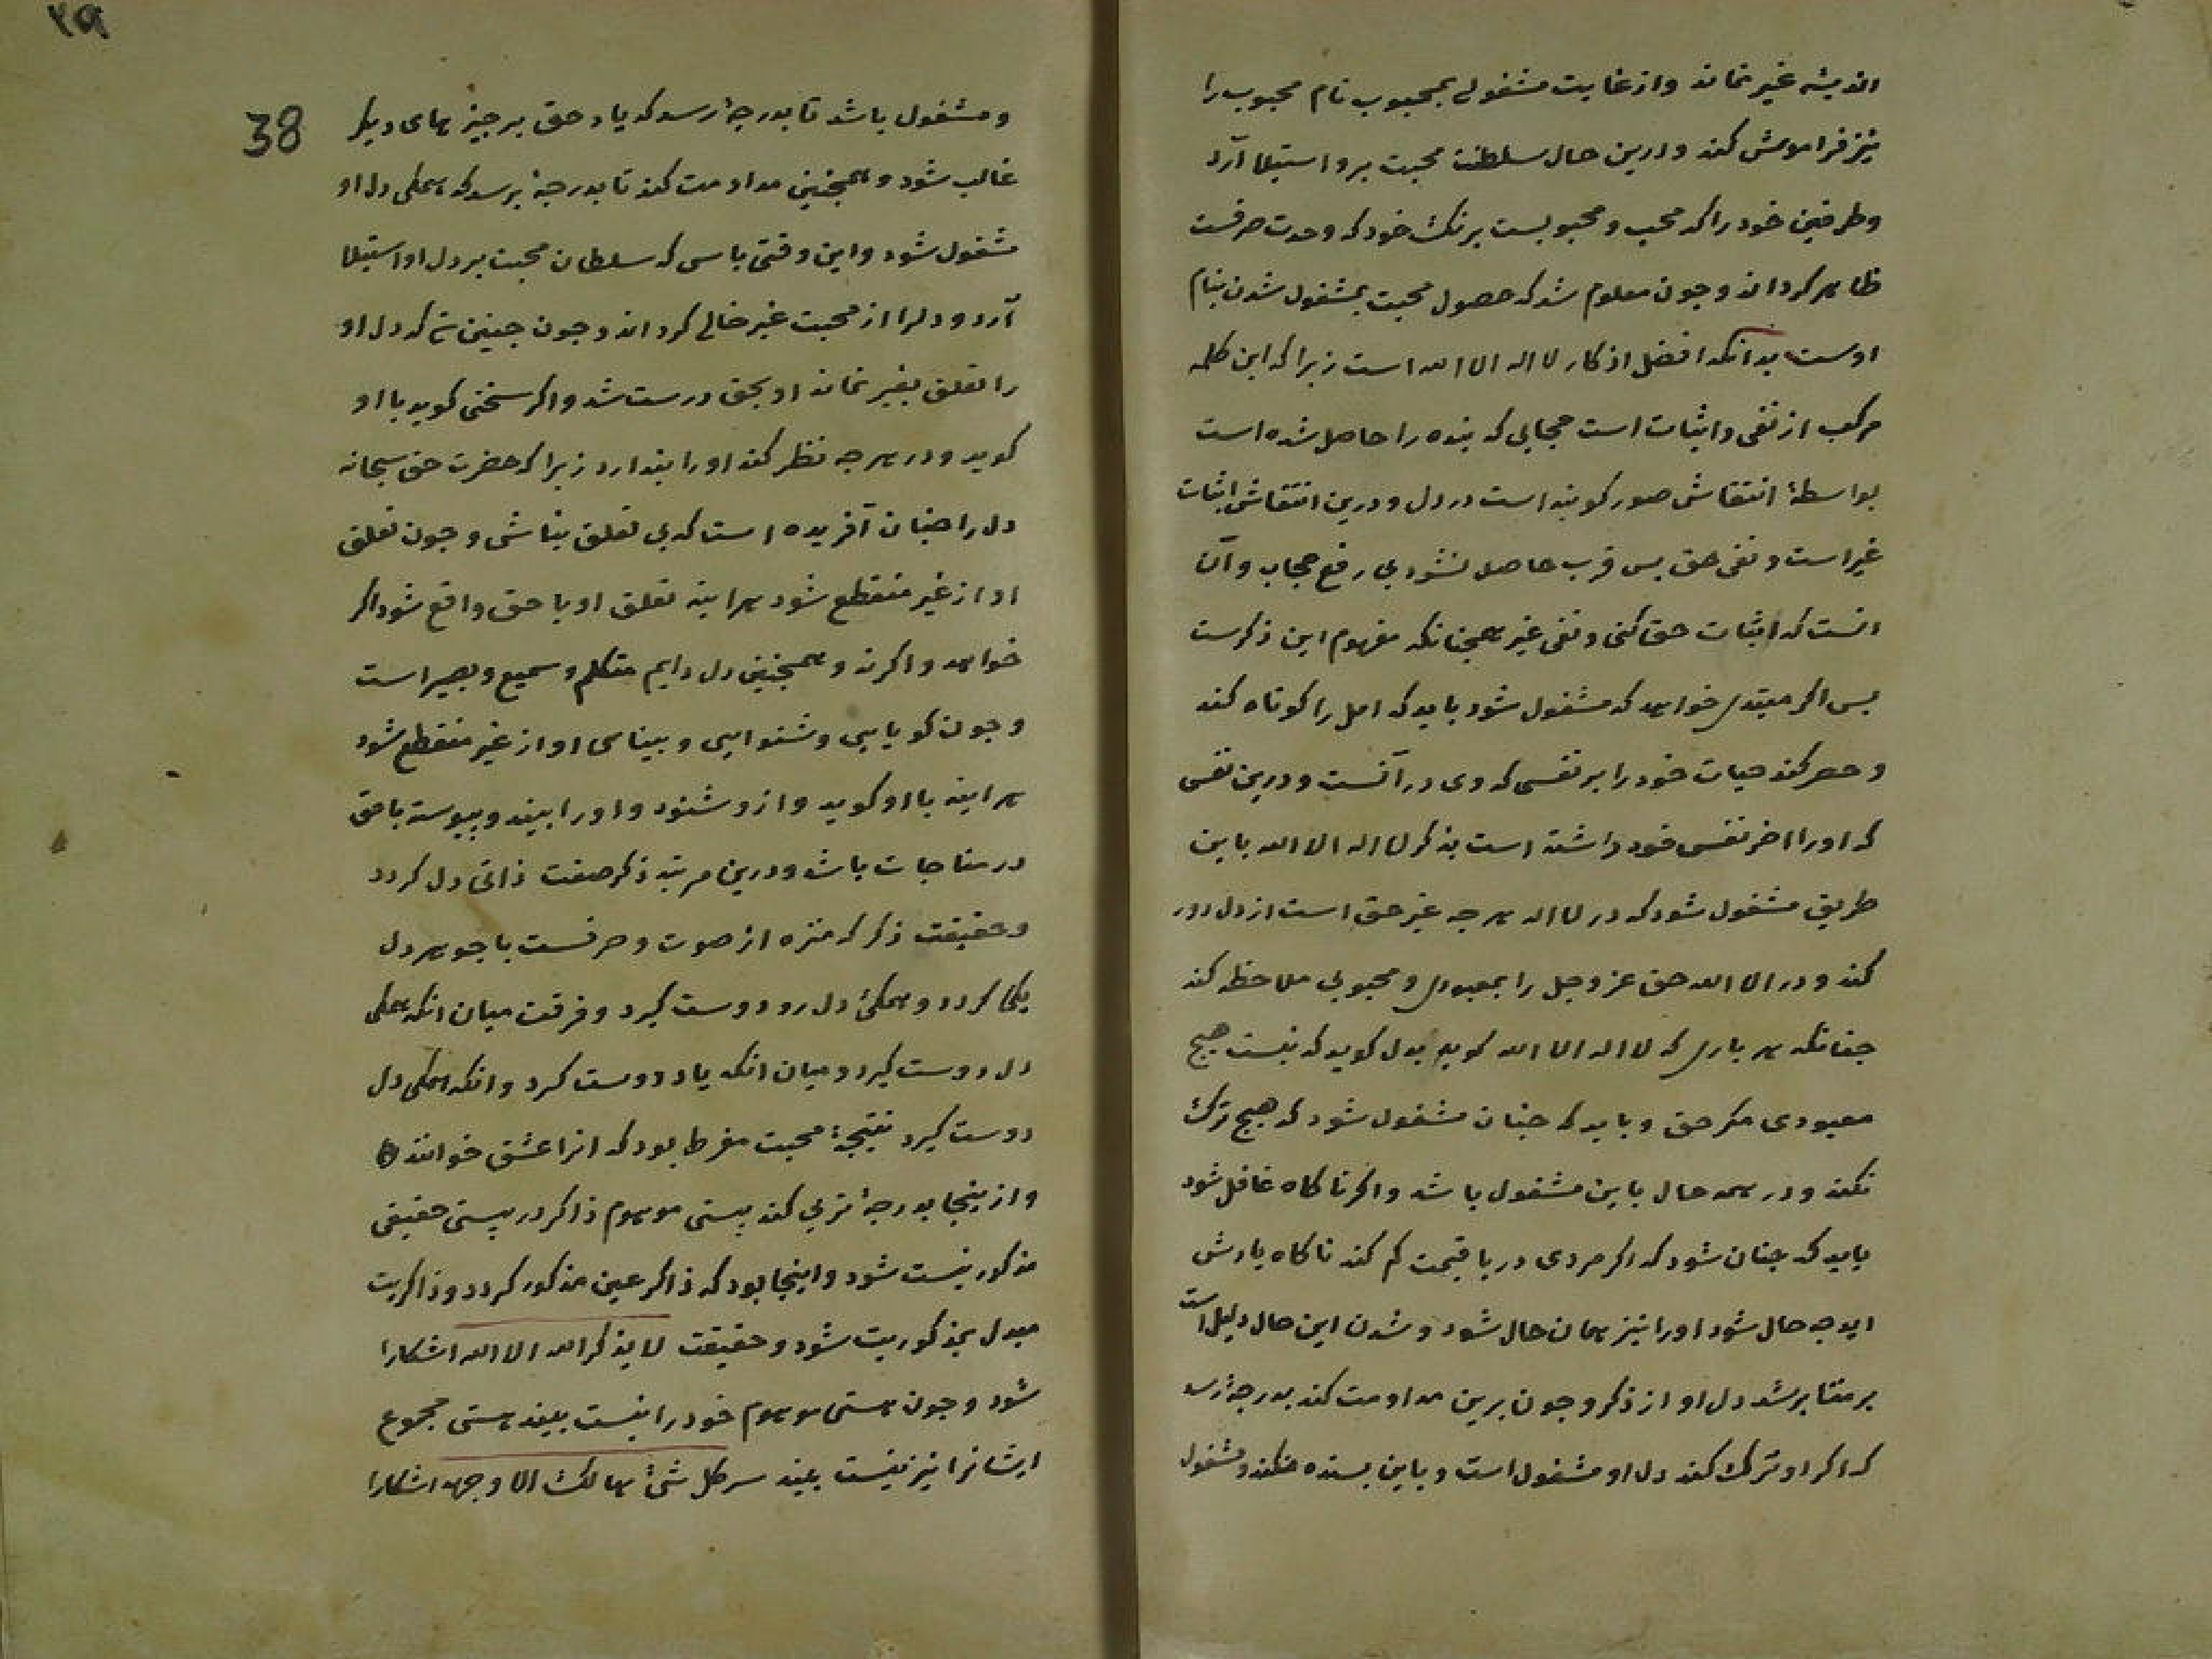 اندیشه غیر نماند واز غایت مشغولی بمحبوب نام محبوب را
نیز فراموش کند ودرین حال سلطنت محبت برو استیلا آرد
وطرفین خود را که محب و محبوبست برنک خود که وحدت صرفست
ظاهر کرداند وجون معلوم شد که حصول محبت بمشغول شدن بنام
اوست بدانکه افضل اذکار لا اله الا الله است زیرا که این کلمه
مرکب از نفی واثبات است حجابی که بنده را حاصل شده است
بواسطهٔ انتقاش صور کونیه است در دل ودرین انتقاش اثبات
غیر است ونفی حق بس قرب حاصل نشود بی رفع حجاب وآن
انست که اثبات حق کنی ونفی غیر همجنانکه مفهوم این ذکرست
بس اکر مبتدی خواهد که مشغول شود باید که امل را کوتاه کند
وحصر کند حیات خود را بر نفسی که وی در آنست ودرین نفس
که اورا اخر نفس خود داشته است بذکر لا اله الا الله باین
طریق مشغول شود که در لا اله هر جه غیر حق است از دل دور
کند ودر الا الله حق عز وجل را بمعبودی ومحبوبی ملاحظه کند
جنانکه هر باری که لا اله الا الله کوید بدل کوید که نیست هیج
معبودی مکر حق وباید که جنان مشغول شود که هیج ترک
نکند ودر همه حال باین مشغول باشد واکر ناکاه غافل شود
باید که جنان شود که اکر مردی در با قیمت کم کند ناکاه یادش
اید جه حال شود اورا نیز همان حال شود وشدن این حال دلیل است
بر متاثر شدن دل او از ذکر وجون برین مداومت کند بدرجهٔ رسد
که اکر او ترک کند دل او مشغول است وباین بسنده نکند ومشغول
38
ومشغول باشد تا بدرجهٔ رسد که یاد حق بر جیزهای دیکر
غالب شود وهمجنین مداومت کند تا بدرجهٔ برسد که همکی دل او
مشغول شود واین وقتی باشد که سلطان محبت بر دل او استیلا
آرد ودلرا از محبت غیر خالی کرداند وجون جنین شد که دل او
را تعلق بغیر نماند او بحق درست شد واکر سخنی کوید با او
کوید ودر هر جه نظر کند اورا بندارد زیرا که حضرت حق سبحانه
دل را جنان آفریده است که بی تعلق نباشی وجون تعلق
او از غیر منقطع شود هراینه تعلق او با حق واقع شود اکر
خواهد واکر نه وهمجنین دل دایم متکلم وسمیع وبصیر است
وجون کویایی وشنوایی وبینایی او از غیر منقطع شود
هراینه با او کوید وازو شنود واورا بیند وپیوسته با حق
در مناجات باشد ودرین مرتبه ذکر صفت ذاتی دل کردد
وحقیقت ذکر که منزه از صوت وحرفست با جوهر دل
یکی کردد وهمکی دل رو دوست کیرد وفرقست میان انکه همکی
دل دوست کیرد ومیان انکه یاد دوست کیرد وانکه همکی دل
دوست کیرد نتیجهٔ محبت مفرط بود که انرا عشق خوانند
واز ینجا بدرجهٔ ترقی کند هستی موهوم ذاکر در هستی حقیقی
مذکور نیست شود واینجا بود که ذاکر عین مذکور کردد وذاکریت
مبدل بمذکوریت شود وحقیقت لا یذکر الله الا الله اشکارا
شود وجون هستی موهوم خود را نیست بیند هستی مجموع
ایشانرا نیز نیست بیند سر کل شئ هالک الا وجهه اشکارا